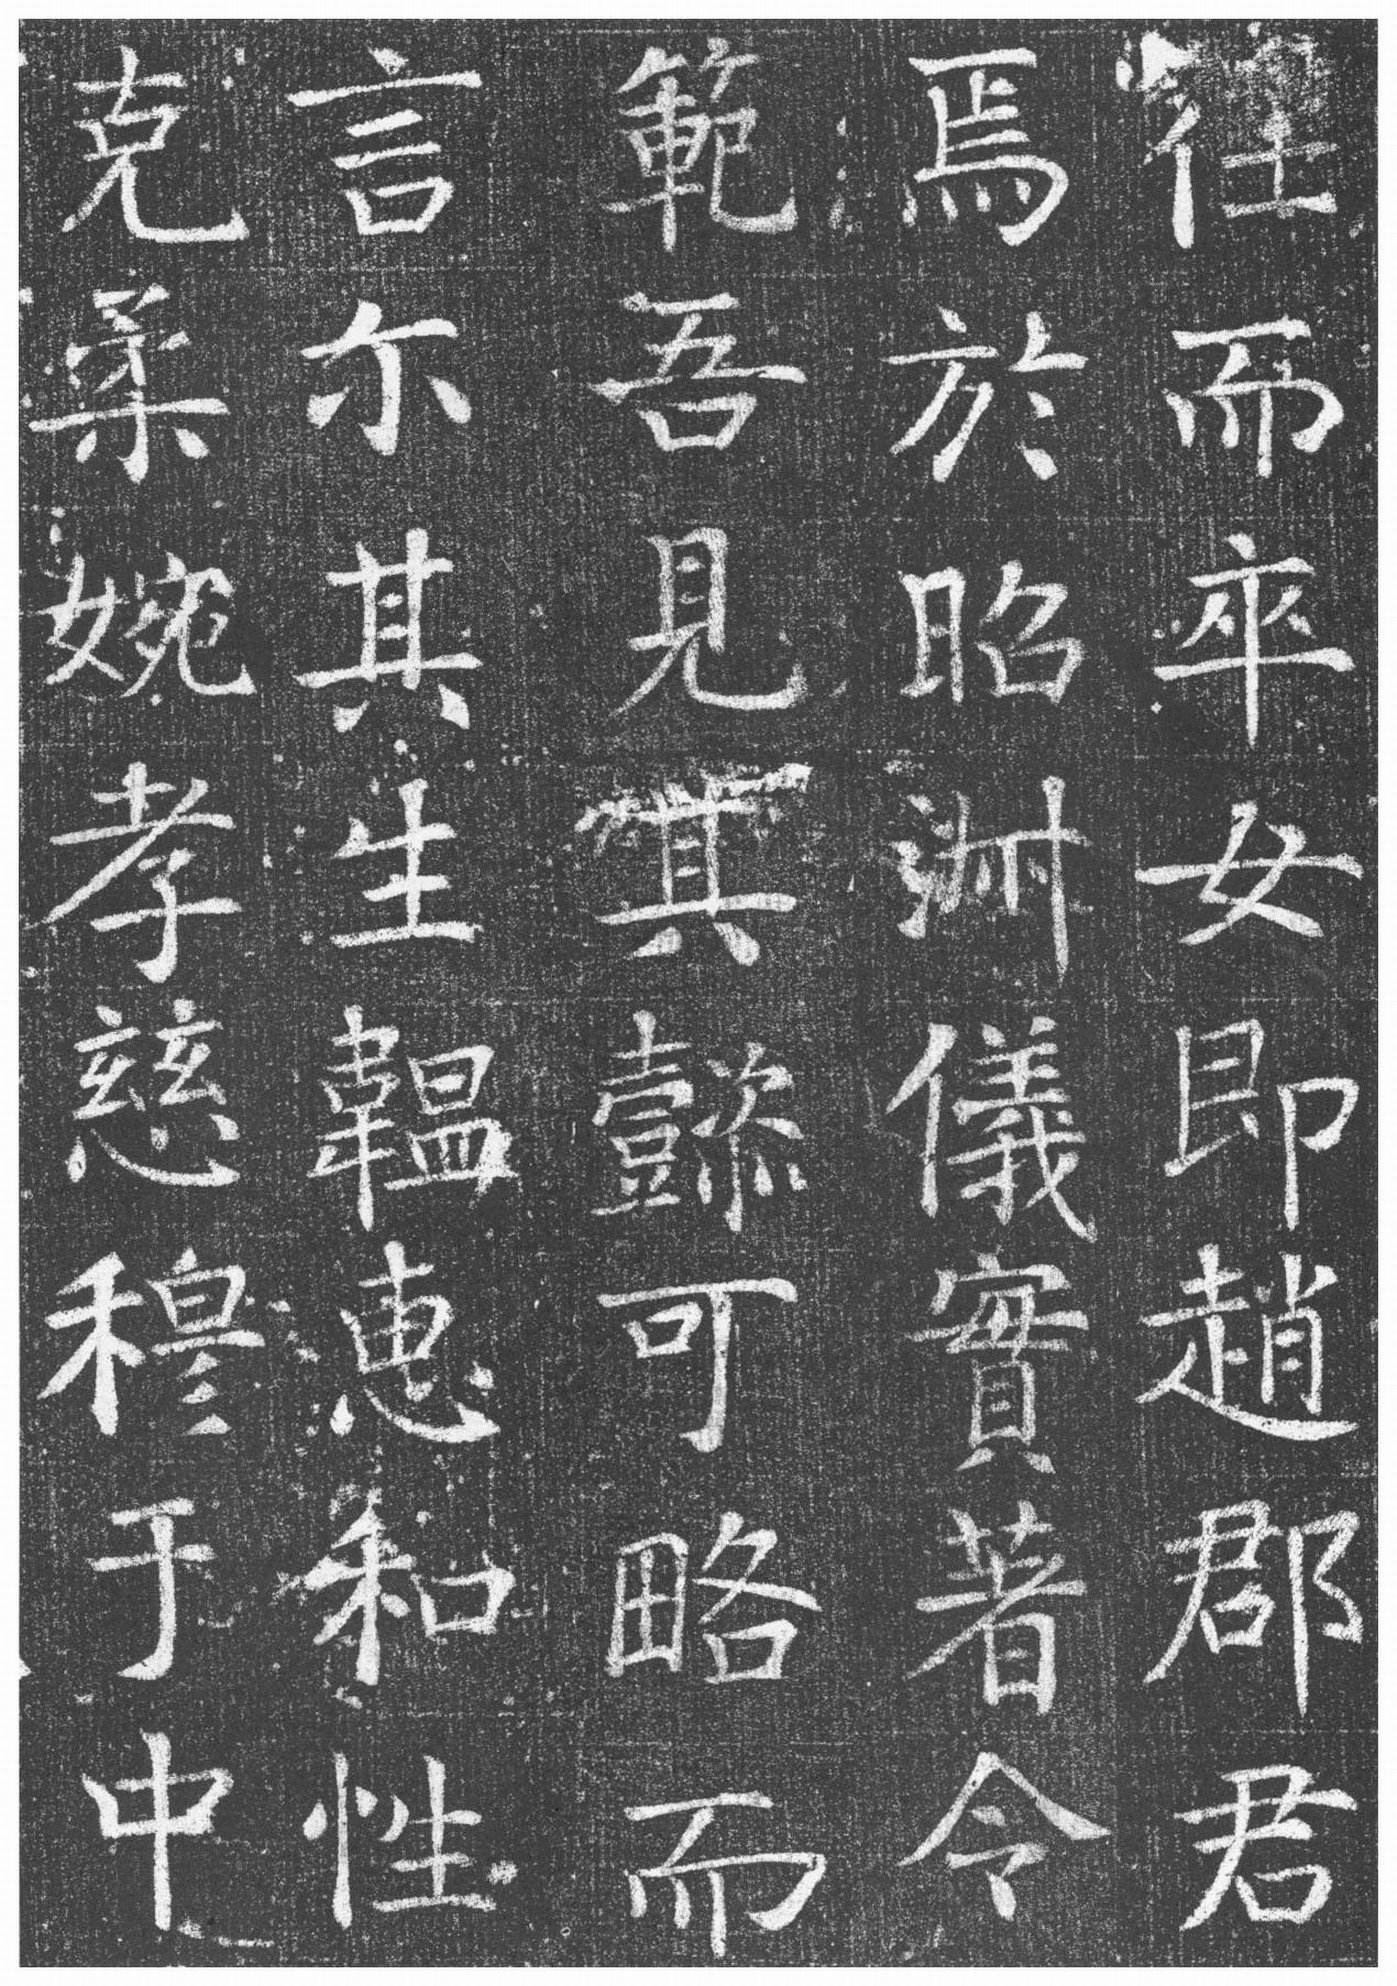 仕而卒女即趙郡君
焉於昭淑儀實著令
範吾見其懿可略而
言尒其生韞惠和性
克柔婉孝慈穆于中